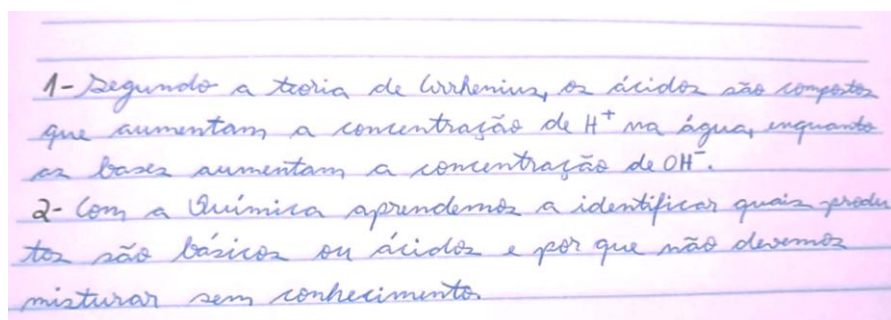 1- Segundo a teoria de Arrhenius, os ácidos são compostos
que aumentam a concentração de H⁺ na água, enquanto
as bases aumentam a concentração de OH⁻.
2- Com a Química aprendemos a identificar quais produ
tos são básicos ou ácidos e por que não devemos
misturar sem conhecimento.